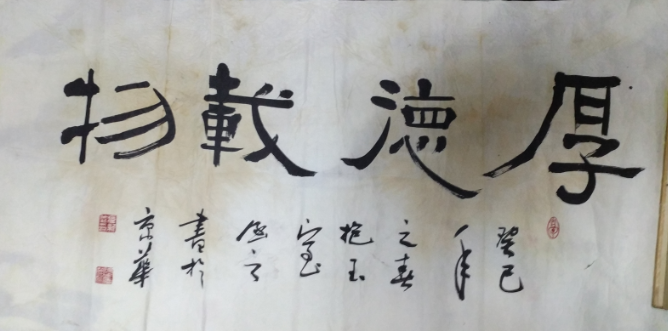 厚德載物
癸巳
年
之春
抱玉
書於
京華